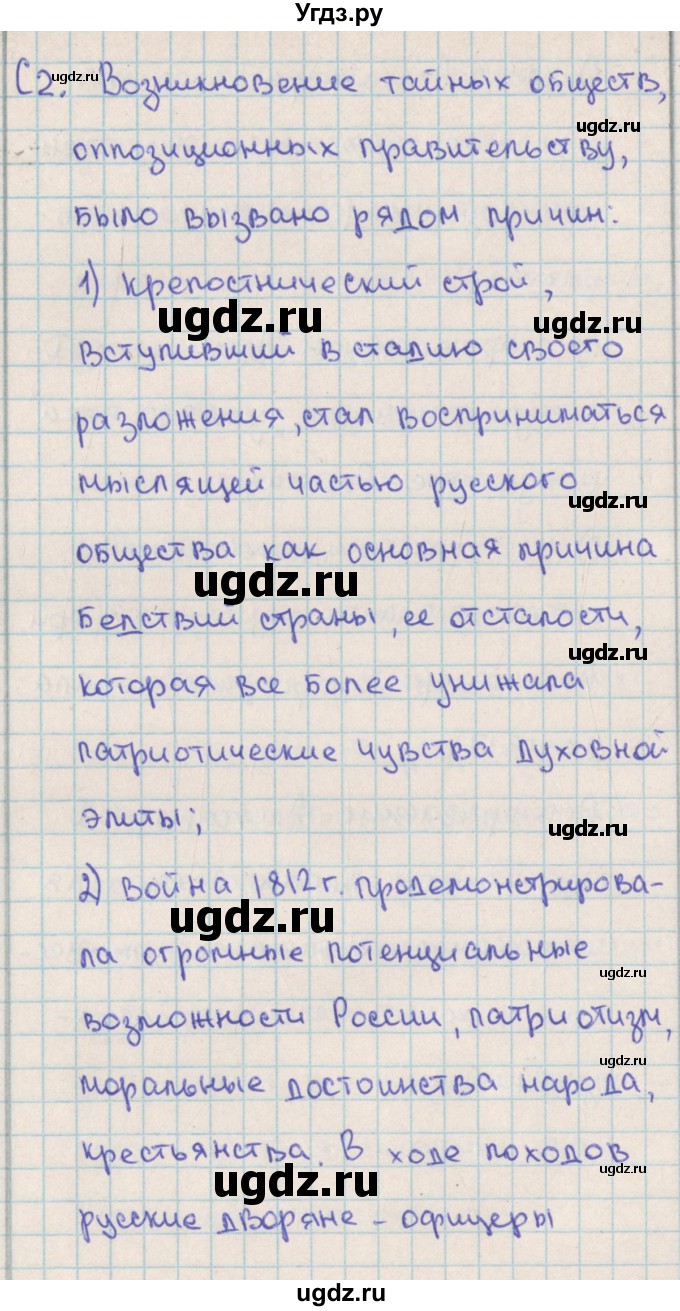 Угдз.ру
С2. Возникновение тайных обществ,
ugdz.ru
ugdz.ru
оппозиционных правительству,
было вызвано рядом причин:
1) крепостнический строй,
ugdz.ru
ugdz.ru
вступивший в стадию своего
разложения, стал восприниматься
мыслящей частью русского
ugdz.ru
общества как основная причина
ugdz.ru
бедствий страны, ее отсталости,
ugdz.ru
которая все более унижала
патриотические чувства духовной
элиты;
ugdz.ru
2) война 1812 г. продемонстрирова-
ugdz.ru
ла огромные потенциальные
ugdz.ru
возможности России, патриотизм,
ugdz.ru
моральные достоинства народа,
крестьянства. В ходе походов
ugdz.ru
ugdz.ru
русские дворяне - офицеры
ugdz.ru